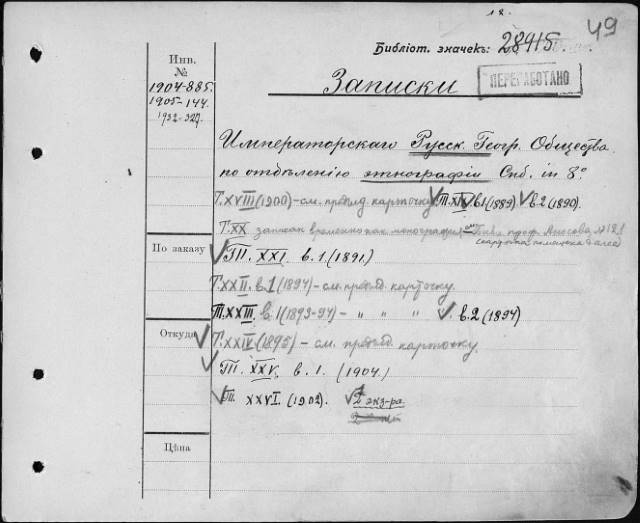 12.
49
Библіот. значекъ: 28915
ПЕРЕРАБОТАНО
Записки
Инв.
№
1904-885.
1905-144.
1932-327.
Императорскаго Русск. Геогр. Общества
по отдѣленію этнографіи Спб. in 8º
Т. XVIII (1900) - см. предыд. карточку. Т. XIX в.1 (1889) в.2 (1890).
Т. XX записан временно как монография
По заказу
Т. XXI. в. 1. (1891)
Т. XXII. в. 1 (1894) - см. предыд. карточку.
Т. XXIII. в. 1 (1893-94) - " " " в. 2 (1894)
Откуда
Т. XXIV (1895) - см. предыд. карточку.
Т. XXV. в. 1. (1904.)
Т. XXVI. (1902). 2 экз-ра.
Цѣна